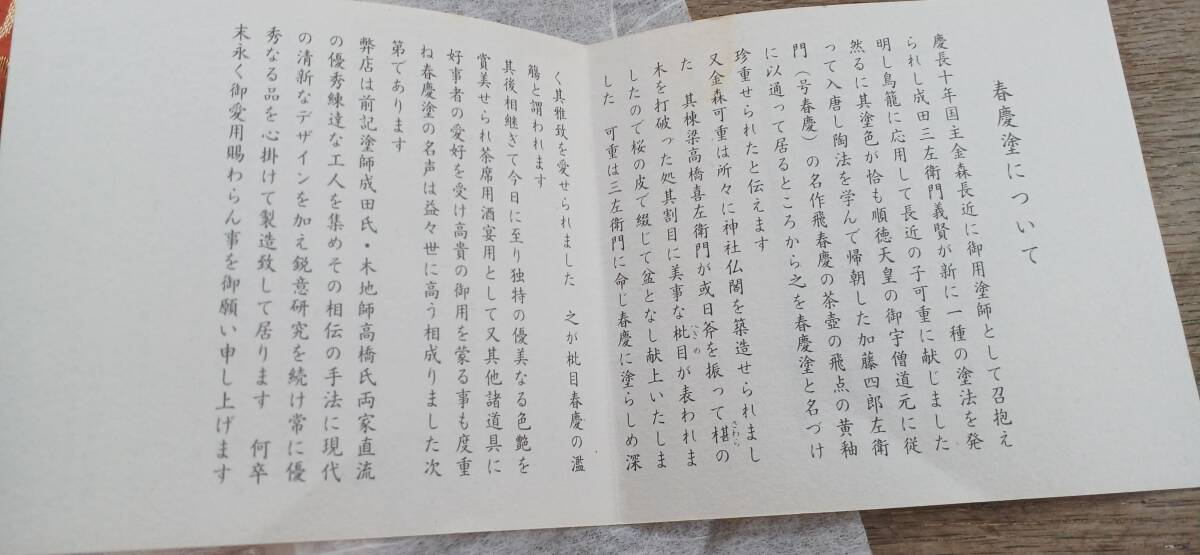 春慶塗について
慶長十年国主金森長近に御用塗師として召抱え
られし成田三左衛門義賢が新に一種の塗法を発
明し鳥籠に応用して長近の子可重に献じました
然るに其塗色が恰も順徳天皇の御宇僧道元に従
って入唐し陶法を学んで帰朝した加藤四郎左衛
門(号春慶)の名作飛春慶の茶壺の飛点の黄釉
に以通って居るところから之を春慶塗と名づけ
珍重せられたと伝えます
又金森可重は所々に神社仏閣を築造せられまし
た 其棟梁高橋喜左衛門が或日斧を振って椹の
さわら
木を打破った処其割目に美事な枇目が表われま
へぎめ
したので桜の皮で綴じて盆となし献上いたしま
した 可重は三左衛門に命じ春慶に塗らしめ深
く其雅致を愛せられました 之が枇目春慶の濫
觴と謂われます
其後相継ぎて今日に至り独特の優美なる色艶を
賞美せられ茶席用酒宴用として又其他諸道具に
好事者の愛好を受け高貴の御用を蒙る事も度重
ね春慶塗の名声は益々世に高う相成りました次
第であります
弊店は前記塗師成田氏・木地師高橋氏両家直流
の優秀練達な工人を集めその相伝の手法に現代
の清新なデザインを加え鋭意研究を続け常に優
秀なる品を心掛けて製造致して居ります 何卒
末永く御愛用賜わらん事を御願い申し上げます